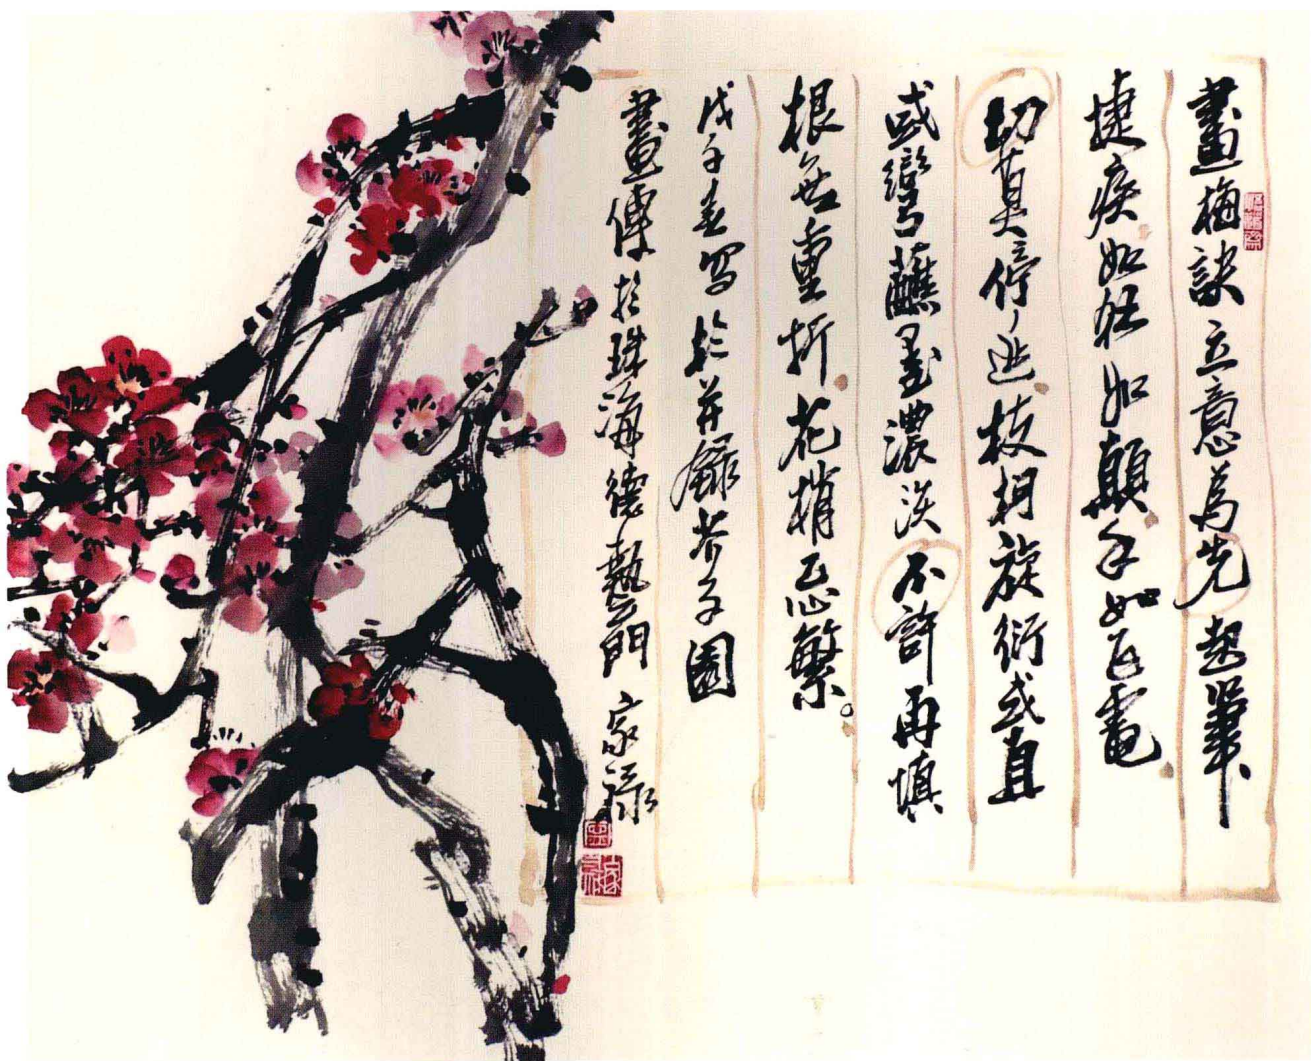 畫梅訣立意為先起筆
捷疾如狂如顛手如飛電
切莫停延枝柯旋衍或直
或彎蘸墨濃淡不許再填
根無重折花梢忌繁。
戊子春寫於並錄芥子園
畫傳於珠海德藝門 家祿